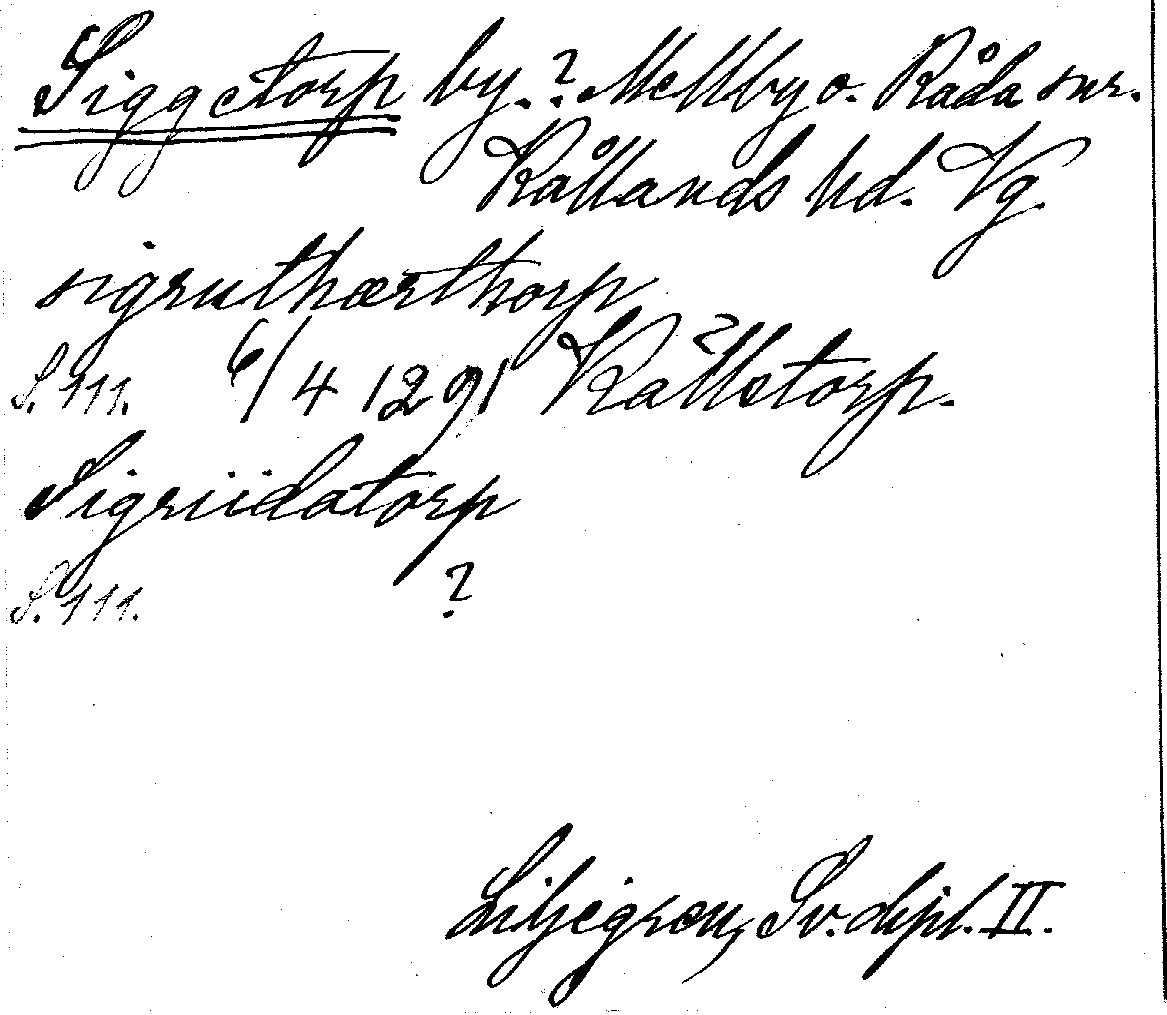 Siggetorp by.? Mellby o. Råda snr.
Kållands hd. Vg.
sigruthærthorp
S. 111. 6/4 1291 Kålletorp.
Sigriidatorp
S. 111. ?
Liljegren, Sv. dipl. II.